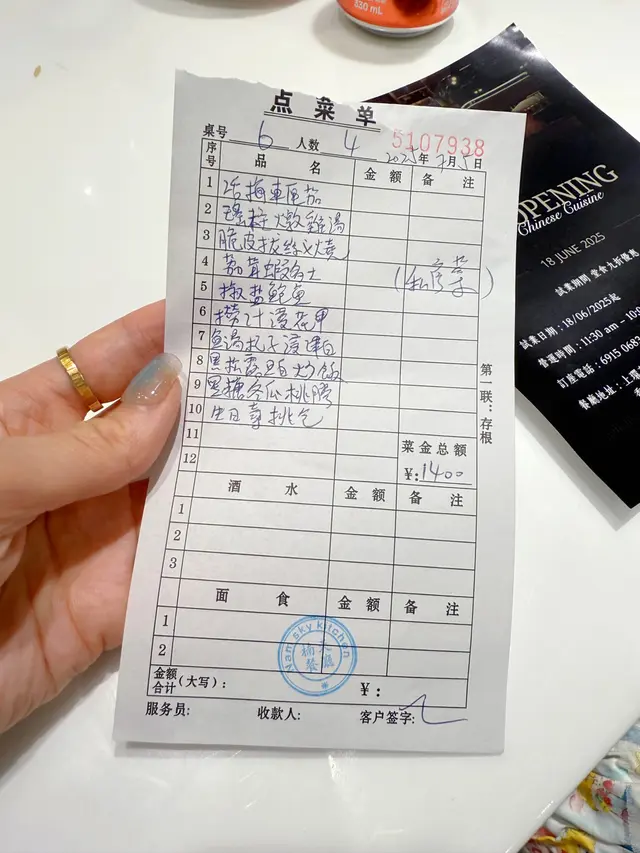 330 mL
点菜单
5107938
桌号 6 人数 4 2025年7月5日
序号 品名 金额 备注
1 话梅車厘茄
2 瑤柱燉雞湯
3 脆皮拔絲叉燒
4 荔茸蝦多士 (私房菜)
5 椒盐鮑魚
6 花甲
7 魚湯杞子浸
8 黑松露 炒飯
9 黑糖冬瓜桃膠
10 生日壽桃包
11
12
菜金总额
¥:1400
第一联:存根
酒水 金额 备注
1
2
3
面食 金额 备注
1
2
Nam sky kitchen
楠天餐廳
金额合计(大写): ¥:
服务员: 收款人: 客户签字:
OPENING
Chinese Cuisine
18 JUNE 2025
試業期間 堂食九折優惠
試業日期:18/06/2025起
營運時間:11:30 am - 10:0
訂座電話:6915 0683
餐廳地址:上環